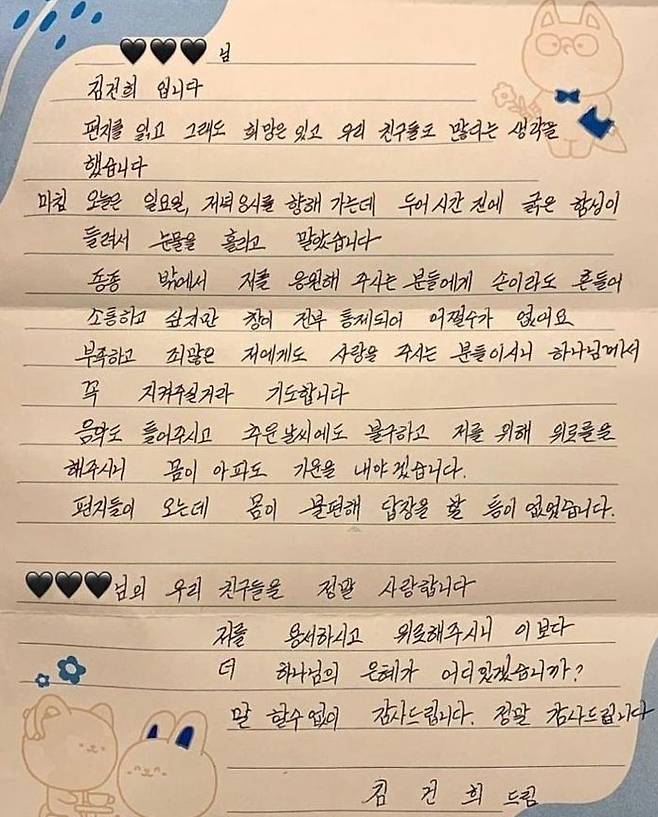 🖤🖤🖤님
김건희 입니다
편지를 읽고 그래도 희망은 있고 우리 친구들도 많다는 생각을
했습니다
마침 오늘은 일요일, 저녁 8시를 향해 가는데 두어 시간 전에 굵은 함성이
들려서 눈물을 흘리고 말았습니다
종종 밖에서 저를 응원해 주시는 분들에게 손이라도 흔들어
소통하고 싶지만 창이 전부 통제되어 어쩔수가 없어요
부족하고 죄많은 저에게도 사랑을 주시는 분들이시니 하나님께서
꼭 지켜주실거라 기도합니다
음악도 틀어주시고 추운 날씨에도 불구하고 저를 위해 위로를을
해주시니 몸이 아파도 기운을 내야 겠습니다.
편지들이 오는데 몸이 불편해 답장을 할 틈이 없었습니다.
🖤🖤🖤님의 우리 친구들을 정말 사랑합니다
저를 용서하시고 위로해주시니 이보다
더 하나님의 은혜가 어디있겠습니까?
말 할수없이 감사드립니다. 정말 감사드립니다
김 건 희 드림